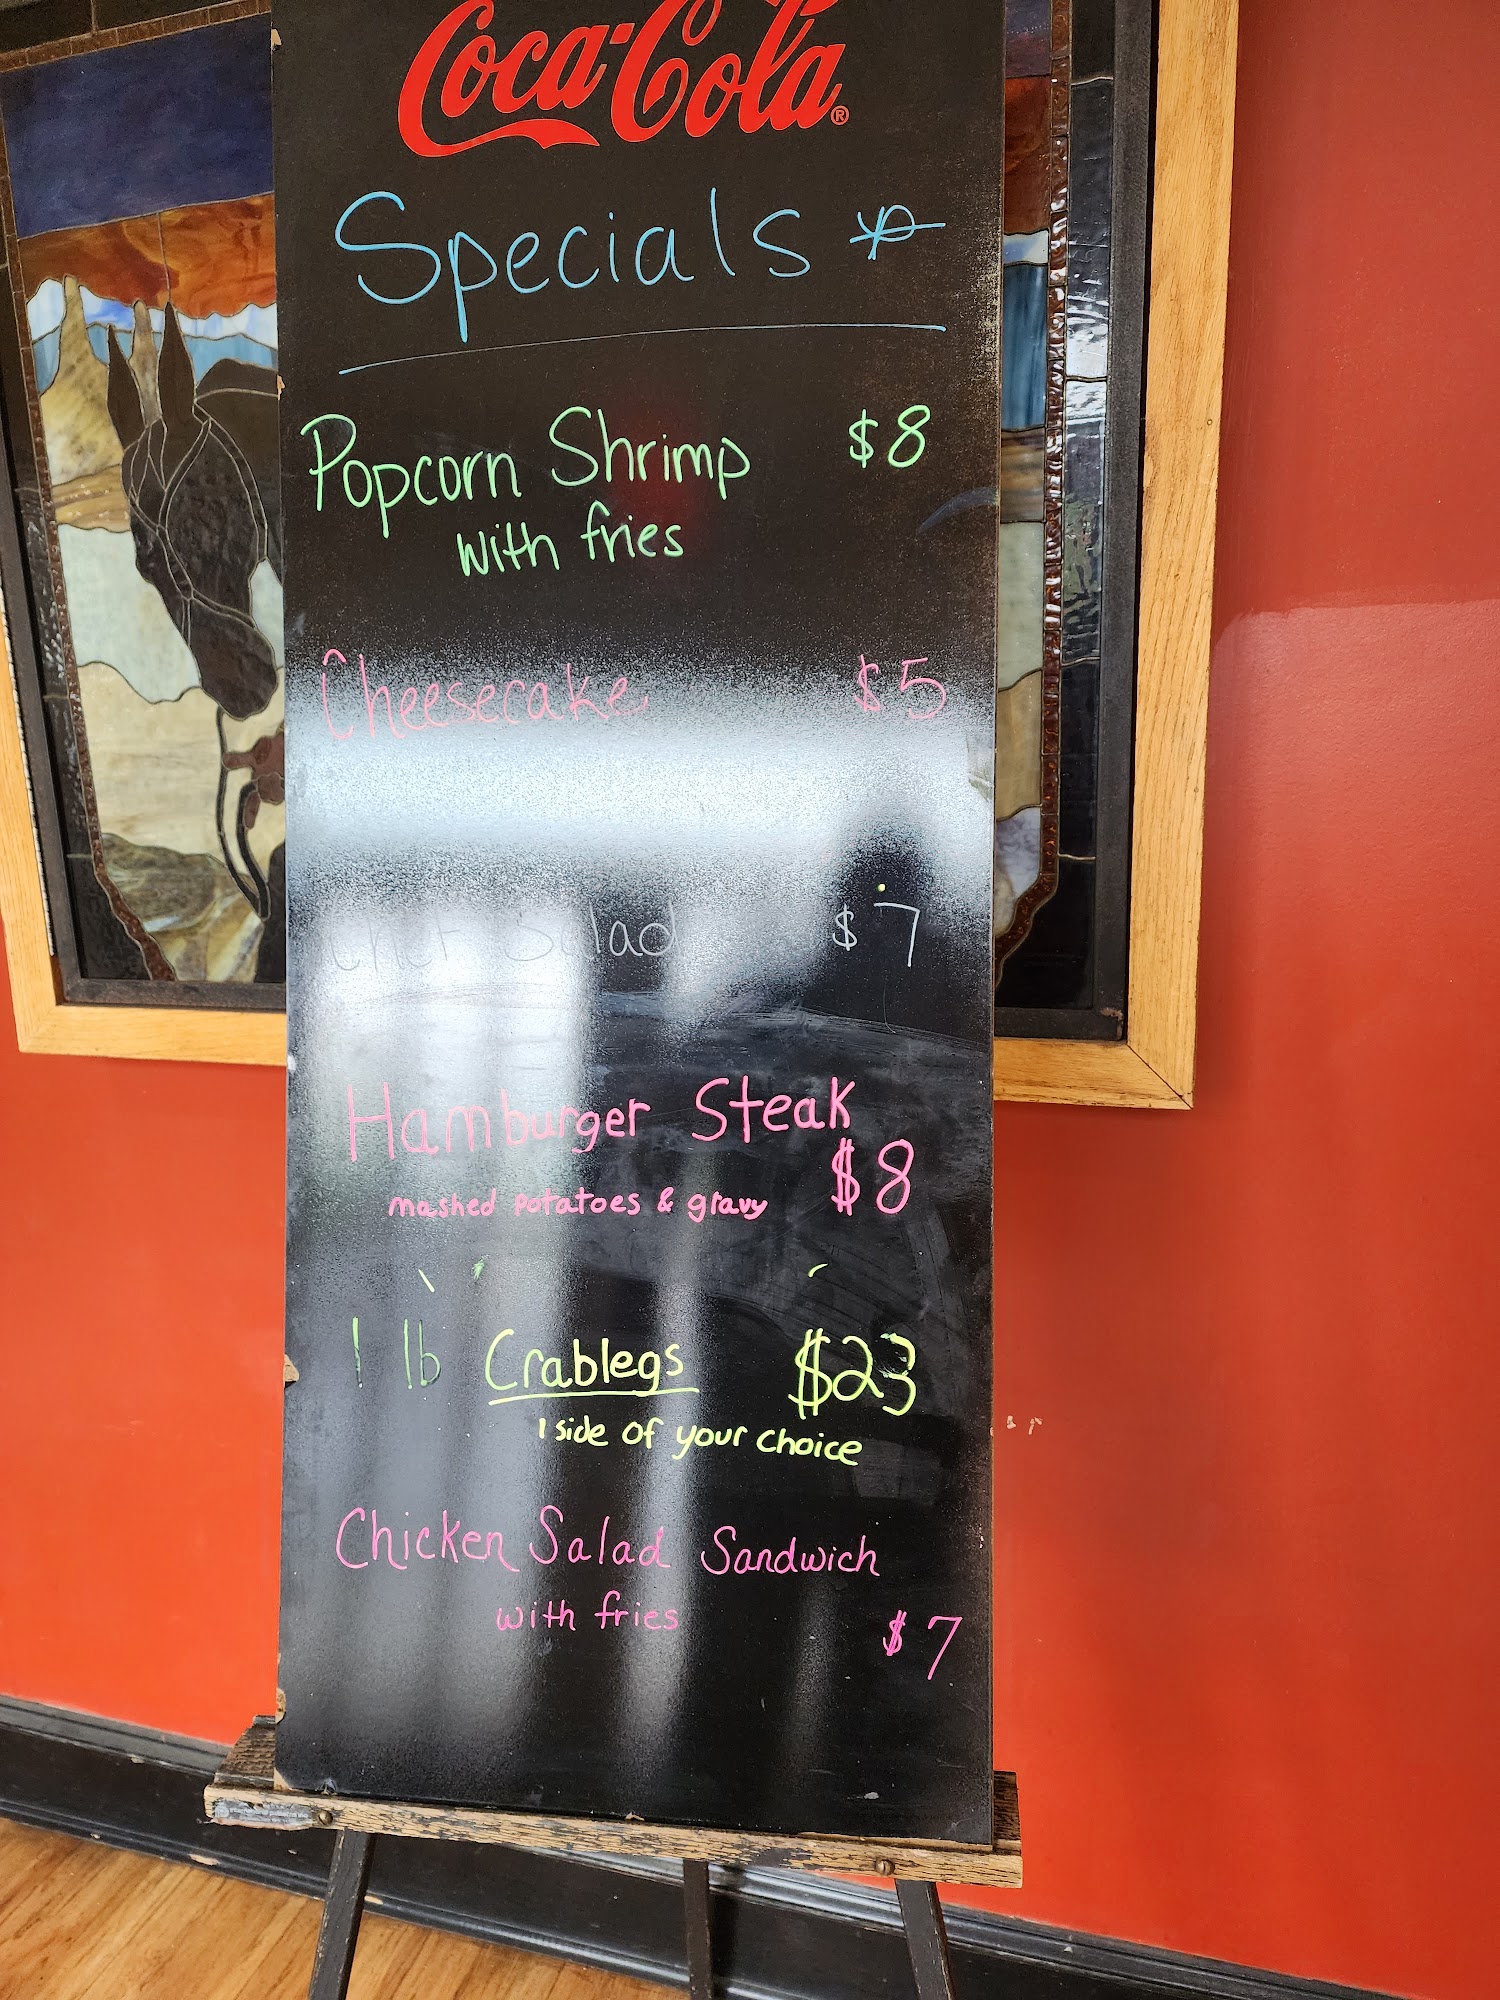 Coca-Cola®
Specials
Popcorn Shrimp $8
with fries
Cheesecake $5
Chef Salad $7
Hamburger Steak
mashed potatoes & gravy $8
1 lb Crablegs $23
1 side of your choice
Chicken Salad Sandwich
with fries
$7